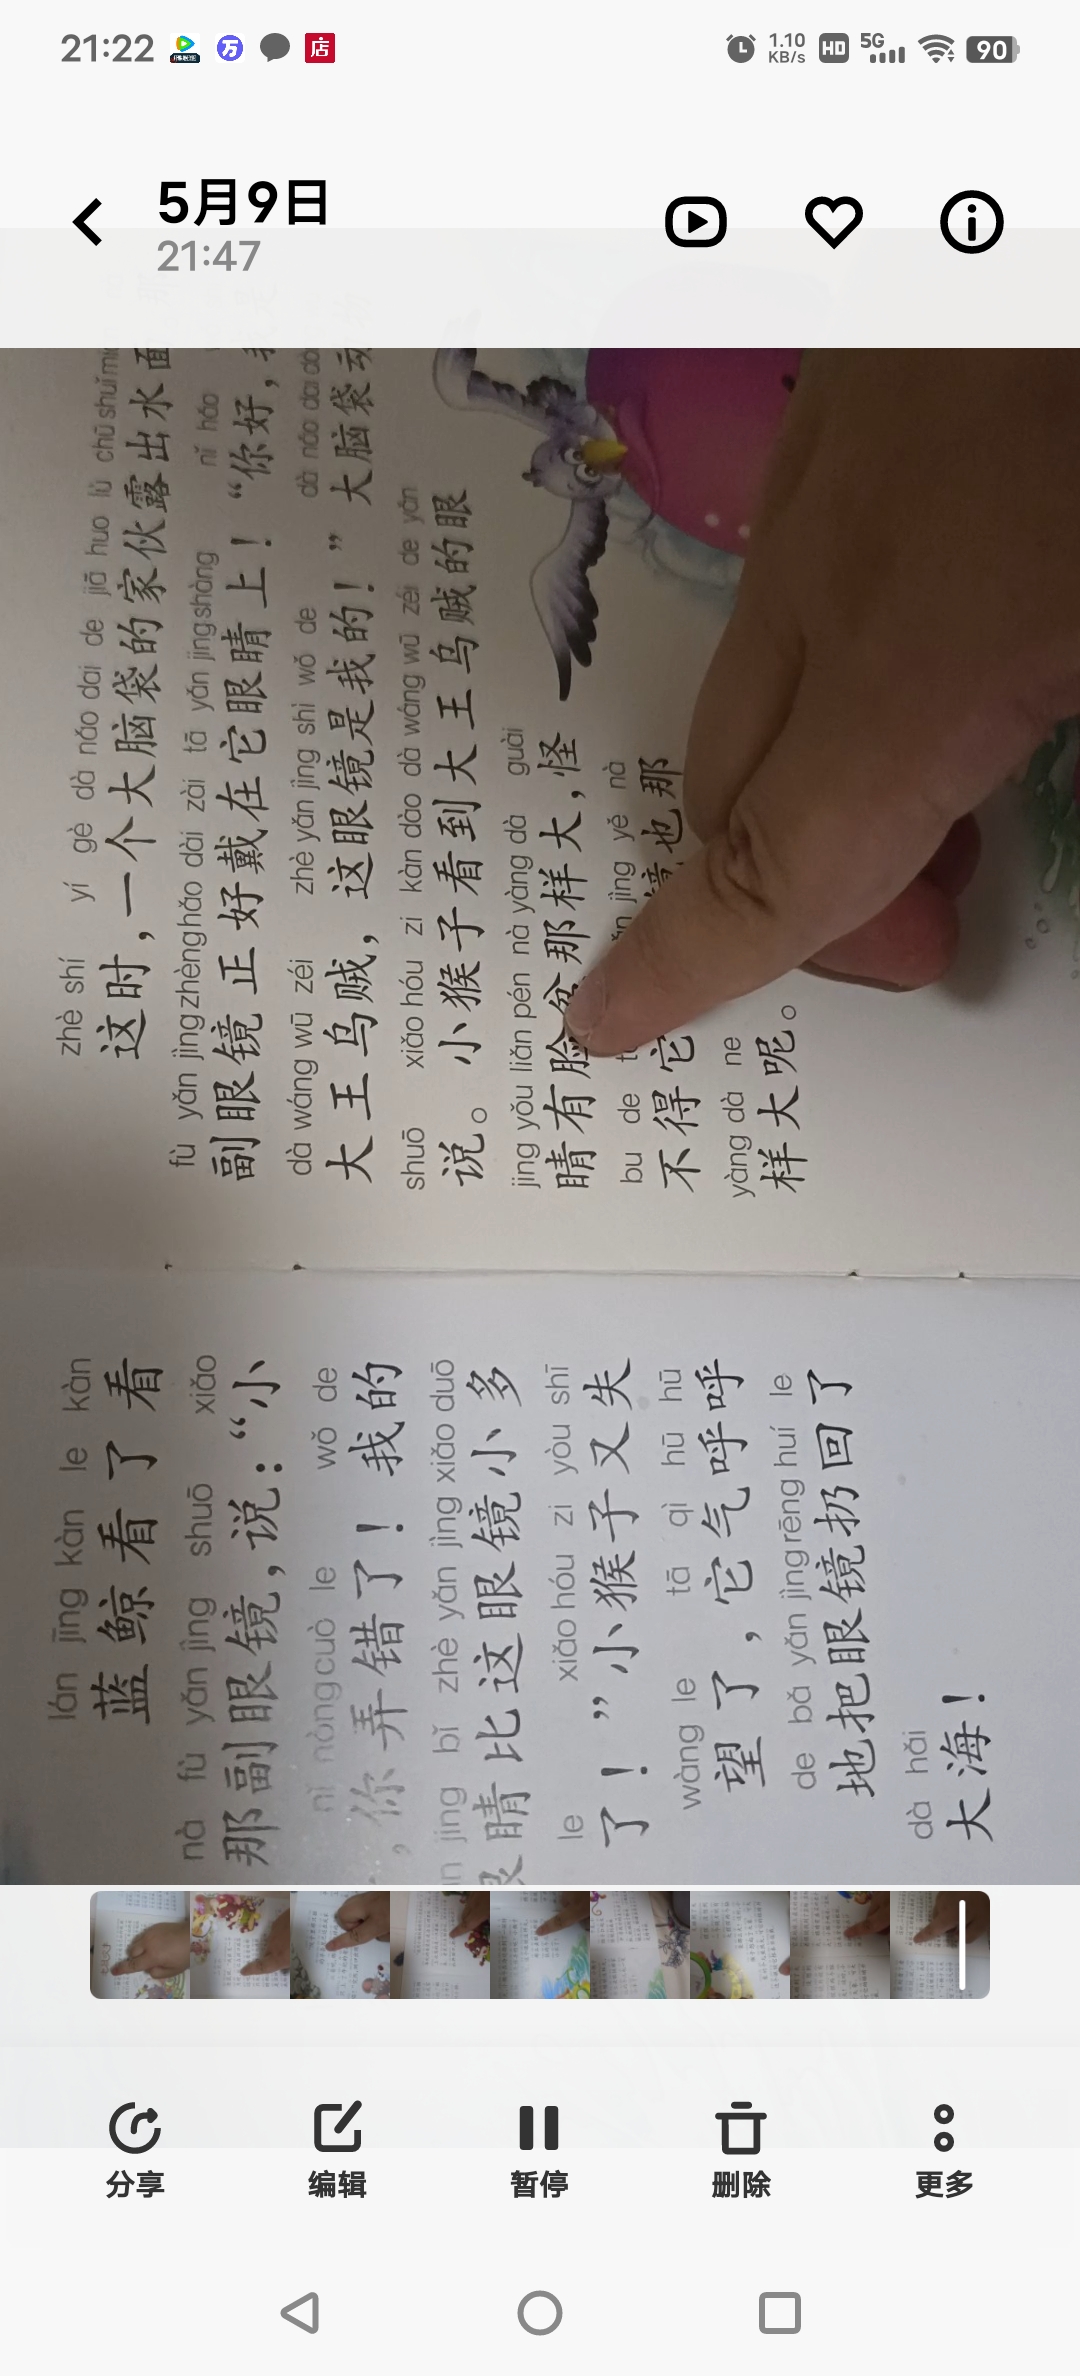 21:22
店
1.10
KB/s
HD
5G
90
5月9日
21:47
lán jīng kàn le kàn
蓝鲸看了看
nà fù yǎn jìng shuō xiǎo
那副眼镜，说：“小
nǐ nòng cuò le wǒ de
，你弄错了！我的
jing bǐ zhè yǎn jìng xiǎo duō
睛比这眼镜小多
le xiǎo hóu zi yòu shī
了！”小猴子又失
wàng le tā qì hū hū
望了，它气呼呼
de bǎ yǎn jìng rēng huí le
地把眼镜扔回了
dà hǎi
大海！
zhè shí yí gè dà nǎo dai de jiā huo lù chū shuǐ
这时，一个大脑袋的家伙露出水面
fù yǎn jìng zhèng hǎo dài zài tā yǎn jing shàng nǐ hǎo
副眼镜正好戴在它眼睛上！“你好，
dà wáng wū zéi zhè yǎn jìng shì wǒ de dà nǎo dai
大王乌贼，这眼镜是我的！”大脑袋
shuō xiǎo hóu zi kàn dào dà wáng wū zéi de yǎn
说。小猴子看到大王乌贼的眼
jing yǒu liǎn pén nà yàng dà guài
睛有脸盆那样大，怪
bu de jìng yě nà
不得它镜也那
yàng dà ne
样大呢。
分享
编辑
暂停
删除
更多